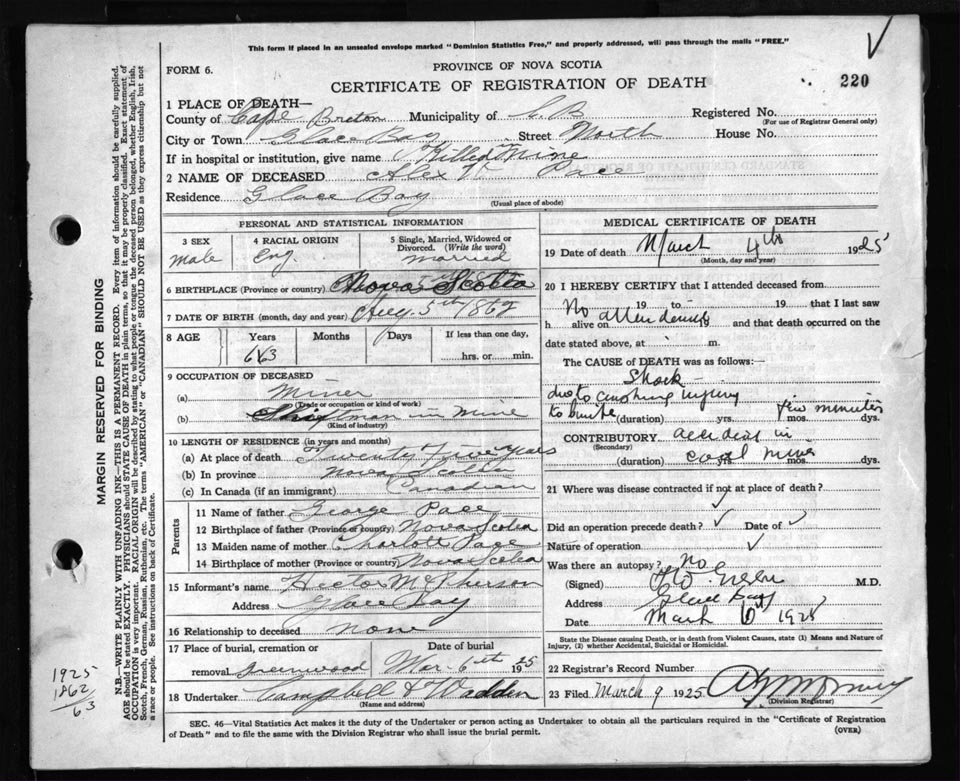 This form if placed in an unsealed envelope marked "Dominion Statistics Free," and properly addressed, will pass through the mails "FREE."
FORM 6.
PROVINCE OF NOVA SCOTIA
CERTIFICATE OF REGISTRATION OF DEATH
220
1 PLACE OF DEATH—
County of Cape Breton Municipality of C. B. Registered No.
(For use of Registrar General only)
City or Town Glace Bay Street North House No.
If in hospital or institution, give name Killed Mine
2 NAME OF DECEASED Alex Pace
Residence Glace Bay
(Usual place of abode)
PERSONAL AND STATISTICAL INFORMATION
3 SEX
Male
4 RACIAL ORIGIN
Eng.
5 Single, Married, Widowed or Divorced. (Write the word)
Married
6 BIRTHPLACE (Province or country) Nova Scotia
7 DATE OF BIRTH (month, day and year) Aug. 5th 1862
8 AGE
Years
63
Months
Days
If less than one day,
hrs. or min.
9 OCCUPATION OF DECEASED
(a) Miner
(Trade or occupation or kind of work)
(b) Shiftman in Mine
(Kind of industry)
10 LENGTH OF RESIDENCE (in years and months)
(a) At place of death Twenty Five Years
(b) In province Nova Scotia
(c) In Canada (if an immigrant) Canadian
Parents
11 Name of father George Pace
12 Birthplace of father (Province or country) Nova Scotia
13 Maiden name of mother Charlott Pace
14 Birthplace of mother (Province or country) Nova Scotia
15 Informant's name Hector McPherson
Address Glace Bay
16 Relationship to deceased None
17 Place of burial, cremation or removal Greenwood
Date of burial
Mar. 6th 1925
18 Undertaker Campbell & Wadden
(Name and address)
MEDICAL CERTIFICATE OF DEATH
19 Date of death March 4th 1925
(Month, day and year)
20 I HEREBY CERTIFY that I attended deceased from
19 to 19 that I last saw
h alive on No attendance 19 and that death occurred on the
date stated above, at m.
The CAUSE of DEATH was as follows:
Shock
due to crushing injury
to (duration) yrs. few minutes
CONTRIBUTORY accident in
(Secondary)
(duration) coal mine mos.
21 Where was disease contracted if not at place of death?
Did an operation precede death? Date of
Nature of operation
Was there an autopsy? No
(Signed) Green M.D.
Address Glace Bay
Date March 6 1925
State the Disease causing Death, or in death from Violent Causes, state (1) Means and Nature of Injury, (2) whether Accidental, Suicidal or Homicidal.
22 Registrar's Record Number
23 Filed March 9 1925
(Division Registrar)
SEC. 46—Vital Statistics Act makes it the duty of the Undertaker or person acting as Undertaker to obtain all the particulars required in the "Certificate of Registration
of Death" and to file the same with the Division Registrar who shall issue the burial permit.
(OVER)
MARGIN RESERVED FOR BINDING
N.B.—WRITE PLAINLY WITH UNFADING INK—THIS IS A PERMANENT RECORD. Every item of information should be carefully supplied.
AGE should be stated EXACTLY. PHYSICIANS should STATE CAUSE OF DEATH in plain terms, so that it may be properly classified. Exact statement of
OCCUPATION is very important. RACIAL ORIGIN will be described by stating to what people or tongue the deceased person belonged, whether English, Irish,
Scotch, French, German, Russian, Ruthenian, etc. The terms "AMERICAN" or "CANADIAN" SHOULD NOT BE USED as they express citizenship but not
a race or people. See instructions on back of Certificate.
1925
1862
63